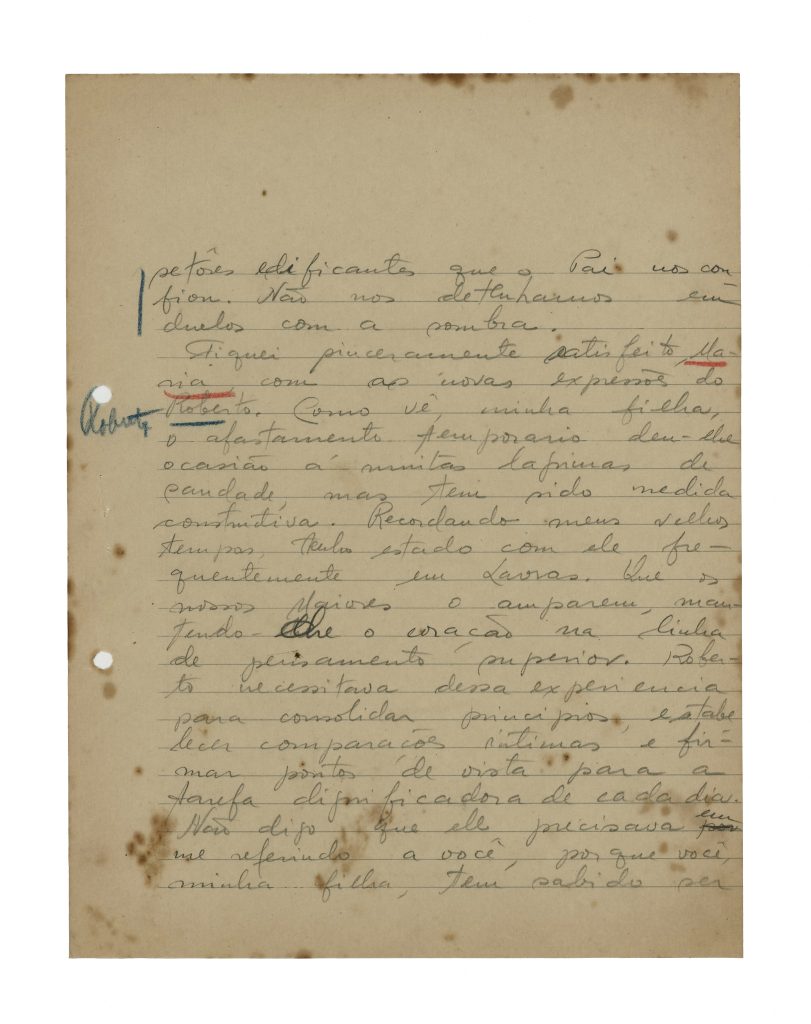 setôres edificantes que o Pai nos con
fiou. Não nos detenhamos em
duelos com a sombra.
Fiquei sinceramente satisfeito, Ma-
ria, com as novas expressões do
Roberto. Como vê, minha filha,
Roberto
o afastamento temporario deu-lhe
ocasião á muitas lagrimas de
saudade, mas tem sido medida
construtiva. Recordando meus velhos
tempos, tenho estado com ele fre-
quentemente em Lavras. Que os
nossos Maiores o amparem, man-
tendo-lhe o coração na linha
de pensamento superior. Rober-
to necessitava dessa experiencia
para consolidar principios, estabe
lecer comparações intimas e fir-
mar pontos de vista para a
tarefa dignificadora de cada dia.
Não digo que ele precisava em
me referindo a você, porque você,
minha filha, tem sabido ser